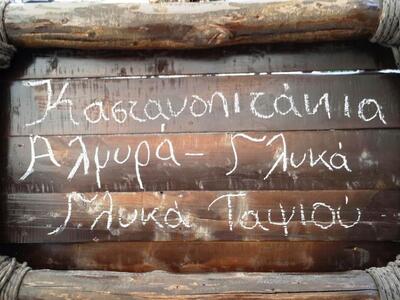 Καστανοπιτάκια
Αλμυρά - Γλυκά
Γλυκά Ταψιού